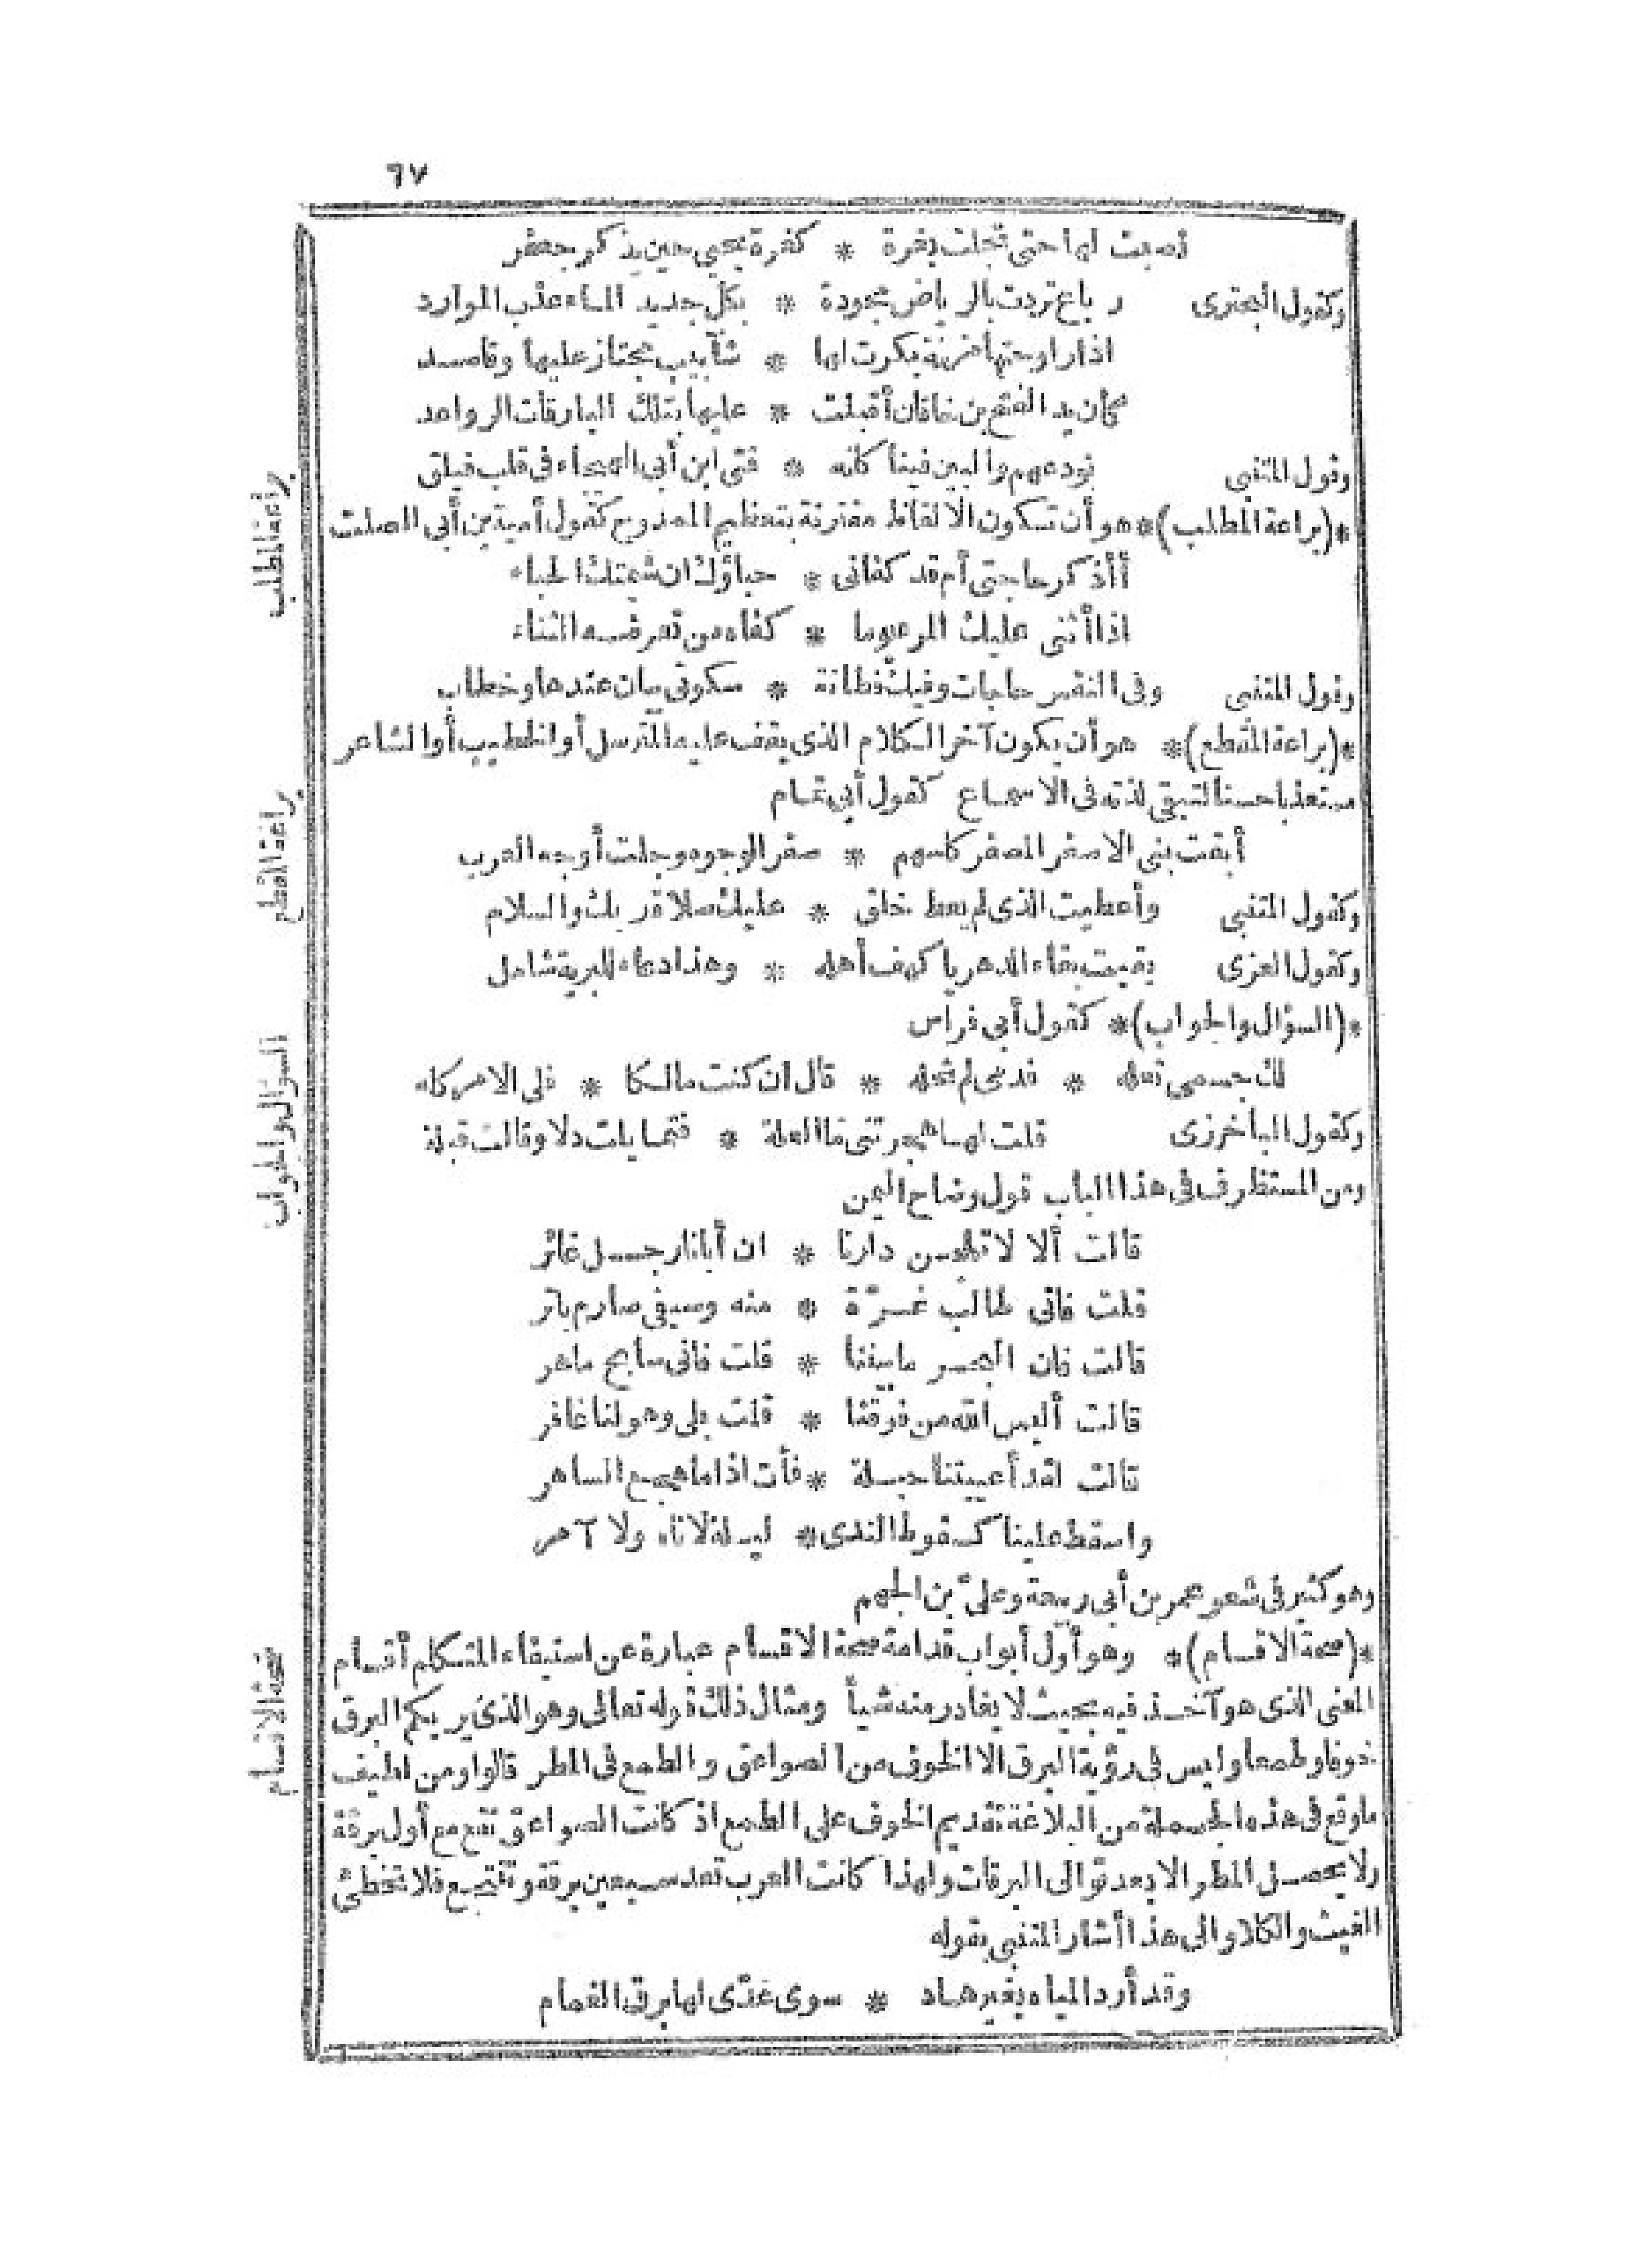 ٦٧
نصبت لها حتى تجلت بغرة * كغرة يحيى حين يذكر جعفر
وكقول البحترى رباع تردت بالرياض مجودة * بكل جديد الماء عذب الموارد
اذا راوحتها مزنة بكرت لها * شآبيب مجتاز عليها وقاصد
كأن يد الفتح بن خاقان أقبلت * عليها بتلك البارقات الرواعد
وقول المتنبى نودعهم والبين فينا كانه * فتى ابن أبى الهيجاء فى قلب فيلق
*(براعة المطلب)* هو أن تكون الالفاظ مقترنة بتعظيم الممدوح كقول أمية بن أبى الصلت
أأذكر حاجتى أم قد كفانى * حباؤك ان شيمتك الحباء
اذا أثنى عليك المرء يوما * كفاه من تعرضه الثناء
وقول المتنبى وفى النفس حاجات وفيك فطانة * سكوتى بيان عندها وخطاب
*(براعة المقطع)* هو أن يكون آخر الكلام الذى يقف عليه المترسل أو الخطيب أو الشاعر
مستعذبا حسنا لتبقى لذته فى الاسماع كقول أبى تمام
أبقت بنى الاصفر المصفر كاسهم * صفر الوجوه وجلت أوجه العرب
وكقول المتنبى وأعطيت الذى لم يعط خلق * عليك صلاة ربك والسلام
وكقول الغزى بقيت بقاء الدهر يا كهف أهله * وهذا دعاء للبرية شامل
*(السؤال والجواب)* كقول أبى فراس
لك جسمى تعله * فدمى لم تحله * قال ان كنت مالكا * فلى الامر كله
وكقول الباخرزى قلت لها هجرتنى ما العلة * فتمايلت دلا وقالت قبلة
ومن المستظرف فى هذا الباب قول وضاح اليمن
قالت ألا لا تلجن دارنا * ان أبانا رجل غائر
قلت فانى طالب غرّة * منه وسيفى صارم باتر
قالت فان البحر ما بيننا * قلت فانى سابح ماهر
قالت أليس الله من فوقنا * قلت بلى وهو لنا غافر
قالت لقد أعييتنا حيلة * فأت اذا ما هجع الساهر
واسقط علينا كسقوط الندى * ليلة لا ناه ولا آمر
وهو كثير فى شعر عمر بن أبى ربيعة وعلىّ بن الجهم
*(صحة الاقسام)* وهو أول أبواب قدامة صحة الاقسام عبارة عن استيفاء المتكلم أقسام
المعنى الذى هو آخذ فيه بحيث لا يغادر منه شيأ ومثال ذلك قوله تعالى وهو الذى يريكم البرق
خوفا وطمعا وليس فى رؤية البرق الا الخوف من الصواعق والطمع فى المطر قالوا ومن لطيف
ما وقع فى هذه الجملة من البلاغة تقديم الخوف على الطمع اذ كانت الصواعق تقع مع أول برقة
ولا يحصل المطر الا بعد توالى البرقات ولهذا كانت العرب تعد سبعين برقة وتنتجع فلا تخطئ
الغيث والكلأ والى هذا أشار المتنبى بقوله
وقد أرد المياه بغير هاد * سوى عدّى لها برق الغمام
براعة المطلب
براعة المقطع
السؤال والجواب
صحة الاقسام